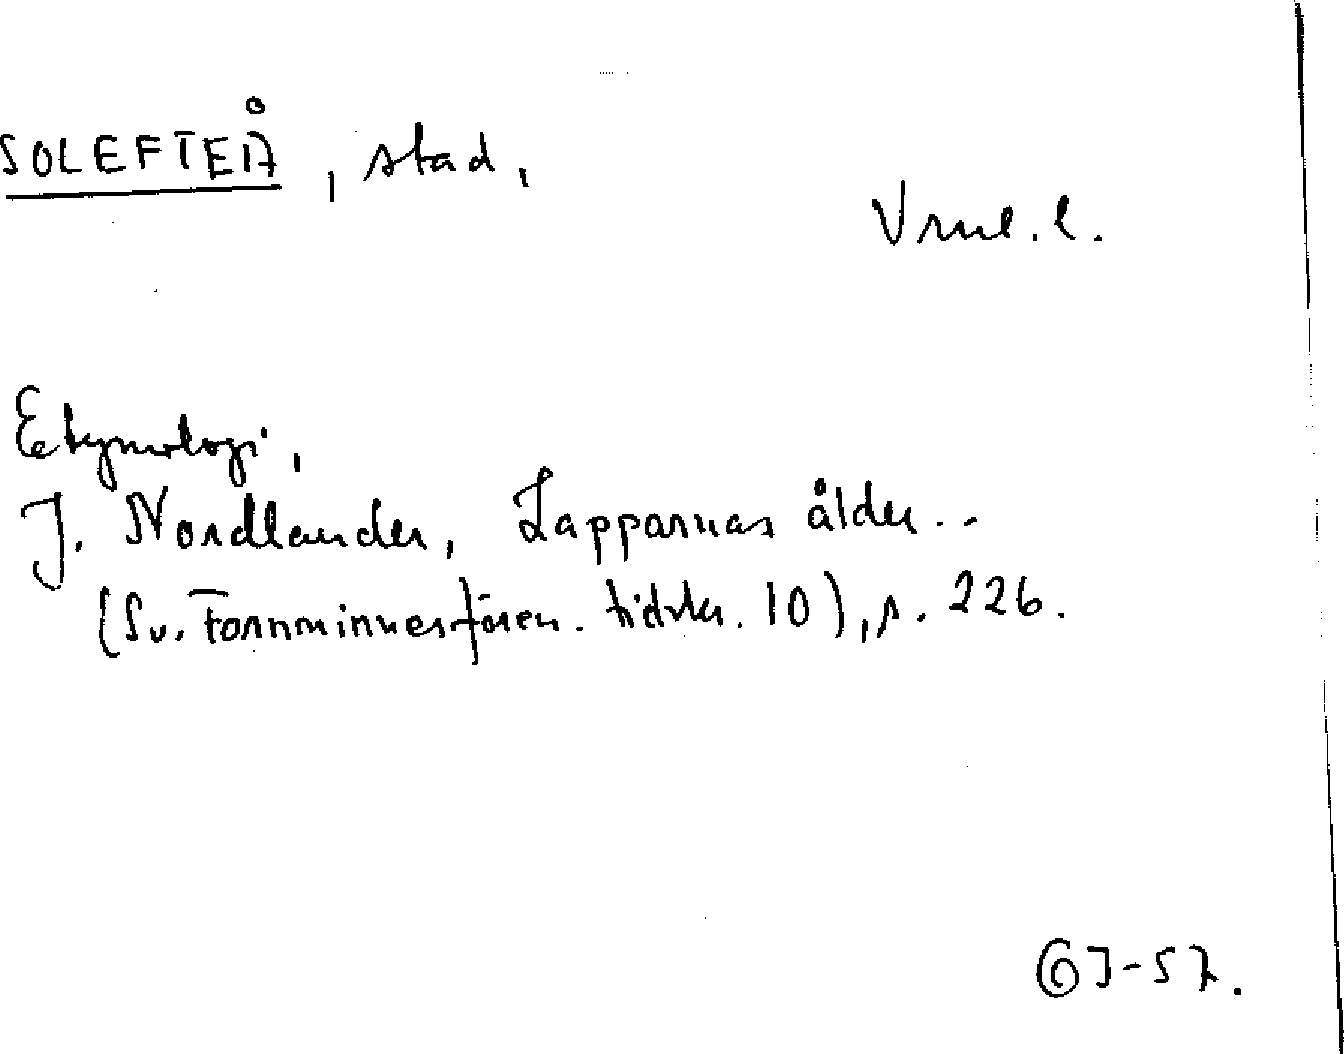 SOLEFTEÅ, stad,
Vrnl. l.
Etymologi,
J. Nordlander, Lapparnas ålder..
(Sv. Fornminnesfören. tidskr. 10), s. 226.
GJ-57.